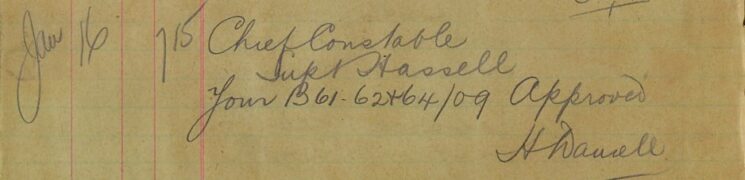 Jan 16 715 Chief Constable
Supt Hassell
Your B61-62+64/09 Approved